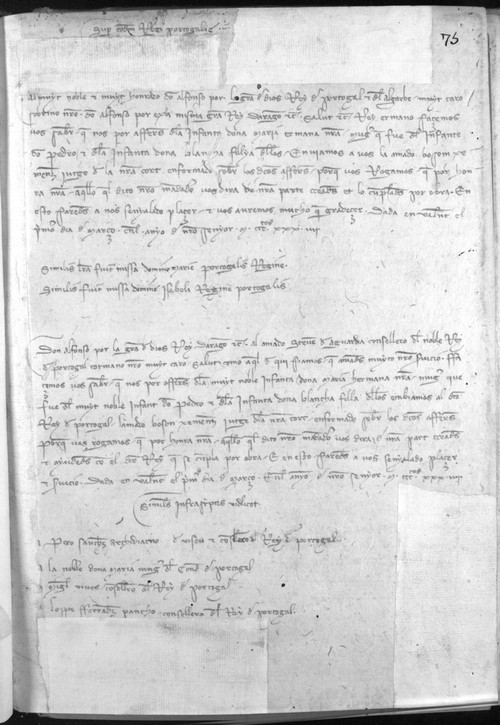 Sup eodem Regi portogalie
75
Al muyt noble e muyt honrado don alfonso por la gra de dios Rey de portogal e del algarbe muyt caro
cosino nro don alfonso por exa misma gra Rey daragon etc Salut etc Rey ermano façemos
vos saber que nos por affers dla Infanta dona maria ermana nra mugr que fue del Infante
don pedro e dla Infanta dona blancha fillya dllos Enviamos a vos lamado boson xe
menez jutge d la nra cort enformado sobr los dctos affers porq vos Rogamos que por hon
ra nra aqllo q dito nro mandadero vos dira de nra parte creades e lo cumplades por obra En
esto faredes a nos senyalado plaçer e vos auremos mucho q gradeçer Dada en valencia el
primo dia de março enl anyo de nro senyor M CCC XXX IIII
Similis lra fuit missa domine marie portogalis Regine
Similis fuit missa domine Isaboli Regine portogalis
Don alfonso por la gra d dios Rey daragon etc al amado Steve de aguarda consellero dl noble Rey
d portogal cormano nro muyt caro salut como aql d qui fiamos e amades muyto nro serviçio ffa
cemos vos saber que nos por affers dla muyt noble Infanta dona maria hermana nra mugr que
fue dl muyt noble Infant don Pedro e dla Infanta dona blancha filla dllos embiamos al dto
Rey d portogal lamado boson xemenez jutge dla nra cort enformado sobr los dctos affers
Porq vos rogamos que por honra nra aqllo q dito nro mandadero vos dira d nra part creades
e ayudedes con el dto Rey que se cumpla por obra E en esto faredes a nos senyalado plaçer
e serviçio Dada en valencia el primo dia d março Enl anyo d nro senyor M CCC XXX IIII
Similis Infrascriptis videlicet
Pero sanchez archidiacno d viseu e consellero dl Rey d portogal
la noble dona maria mugr dl Conde d portogal
Migl vives consellero dl Rey d portogal
lopez fferrandez pancho consellero dl Rey d portogal